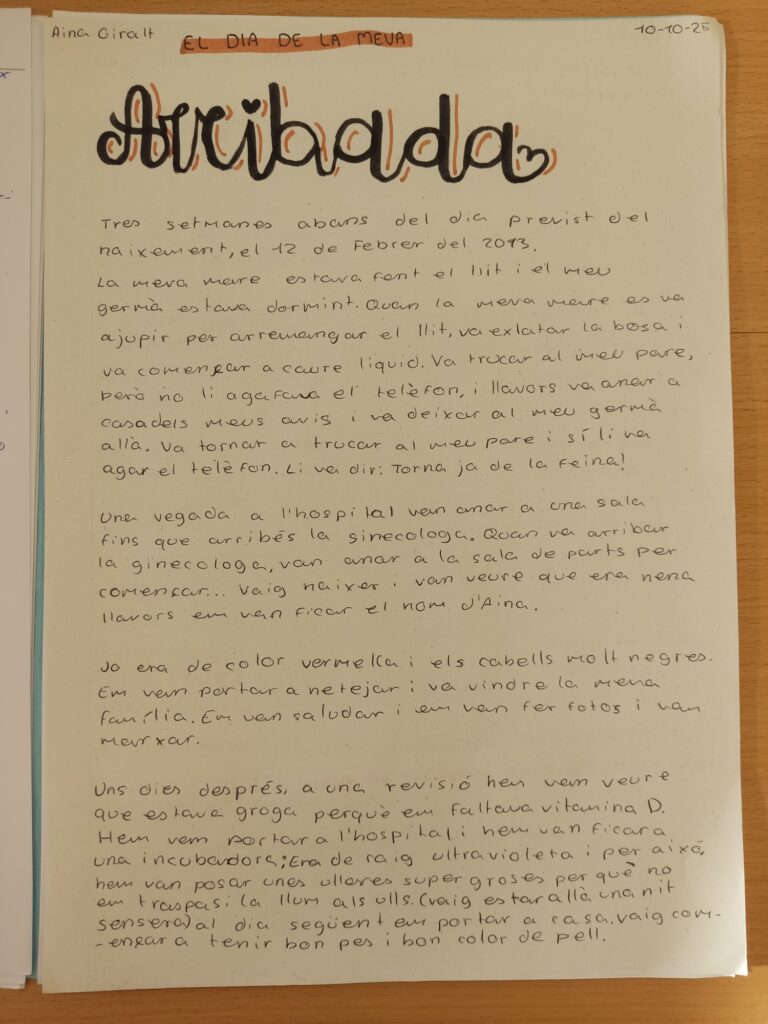 Aina Giralt
EL DIA DE LA MEVA
10-10-25
Arribada
Tres setmanes abans del dia previst del
naixement, el 12 de Febrer del 2013.
La meva mare estava fent el llit i el meu
germà estava dormint. Quan la meva mare es va
ajupir per arremangar el llit, va exlatar la bosa i
va començar a caure liquid. Va trucar al meu pare,
però no li agafava el telèfon, i llavors va anar a
casa dels meus avis i va deixar al meu germà
allà. Va tornar a trucar al meu pare i sí li va
agar el telèfon. Li va dir: Torna ja de la feina!
Una vegada a l'hospital van anar a una sala
fins que arribés la ginecologa. Quan va arribar
la ginecologa, van anar a la sala de parts per
començar... Vaig naixer i van veure que era nena
llavors em van ficar el nom d'Aina.
Jo era de color vermella i els cabells molt negres.
Em van portar a netejar i va vindre la meva
família. Em van saludar i em van fer fotos i van
marxar.
Uns dies després, a una revisió hem van veure
que estava groga perquè em faltava vitamina D.
Hem van portar a l'hospital i hem van ficar a
una incubadora; Era de raig ultravioleta i per aixó,
hem van posar unes ulleres super groses per què no
em traspasi la llum als ulls. (vaig estar allà una nit
sensera) al dia següent em portar a casa. Vaig com-
-ençar a tenir bon pes i bon color de pell.